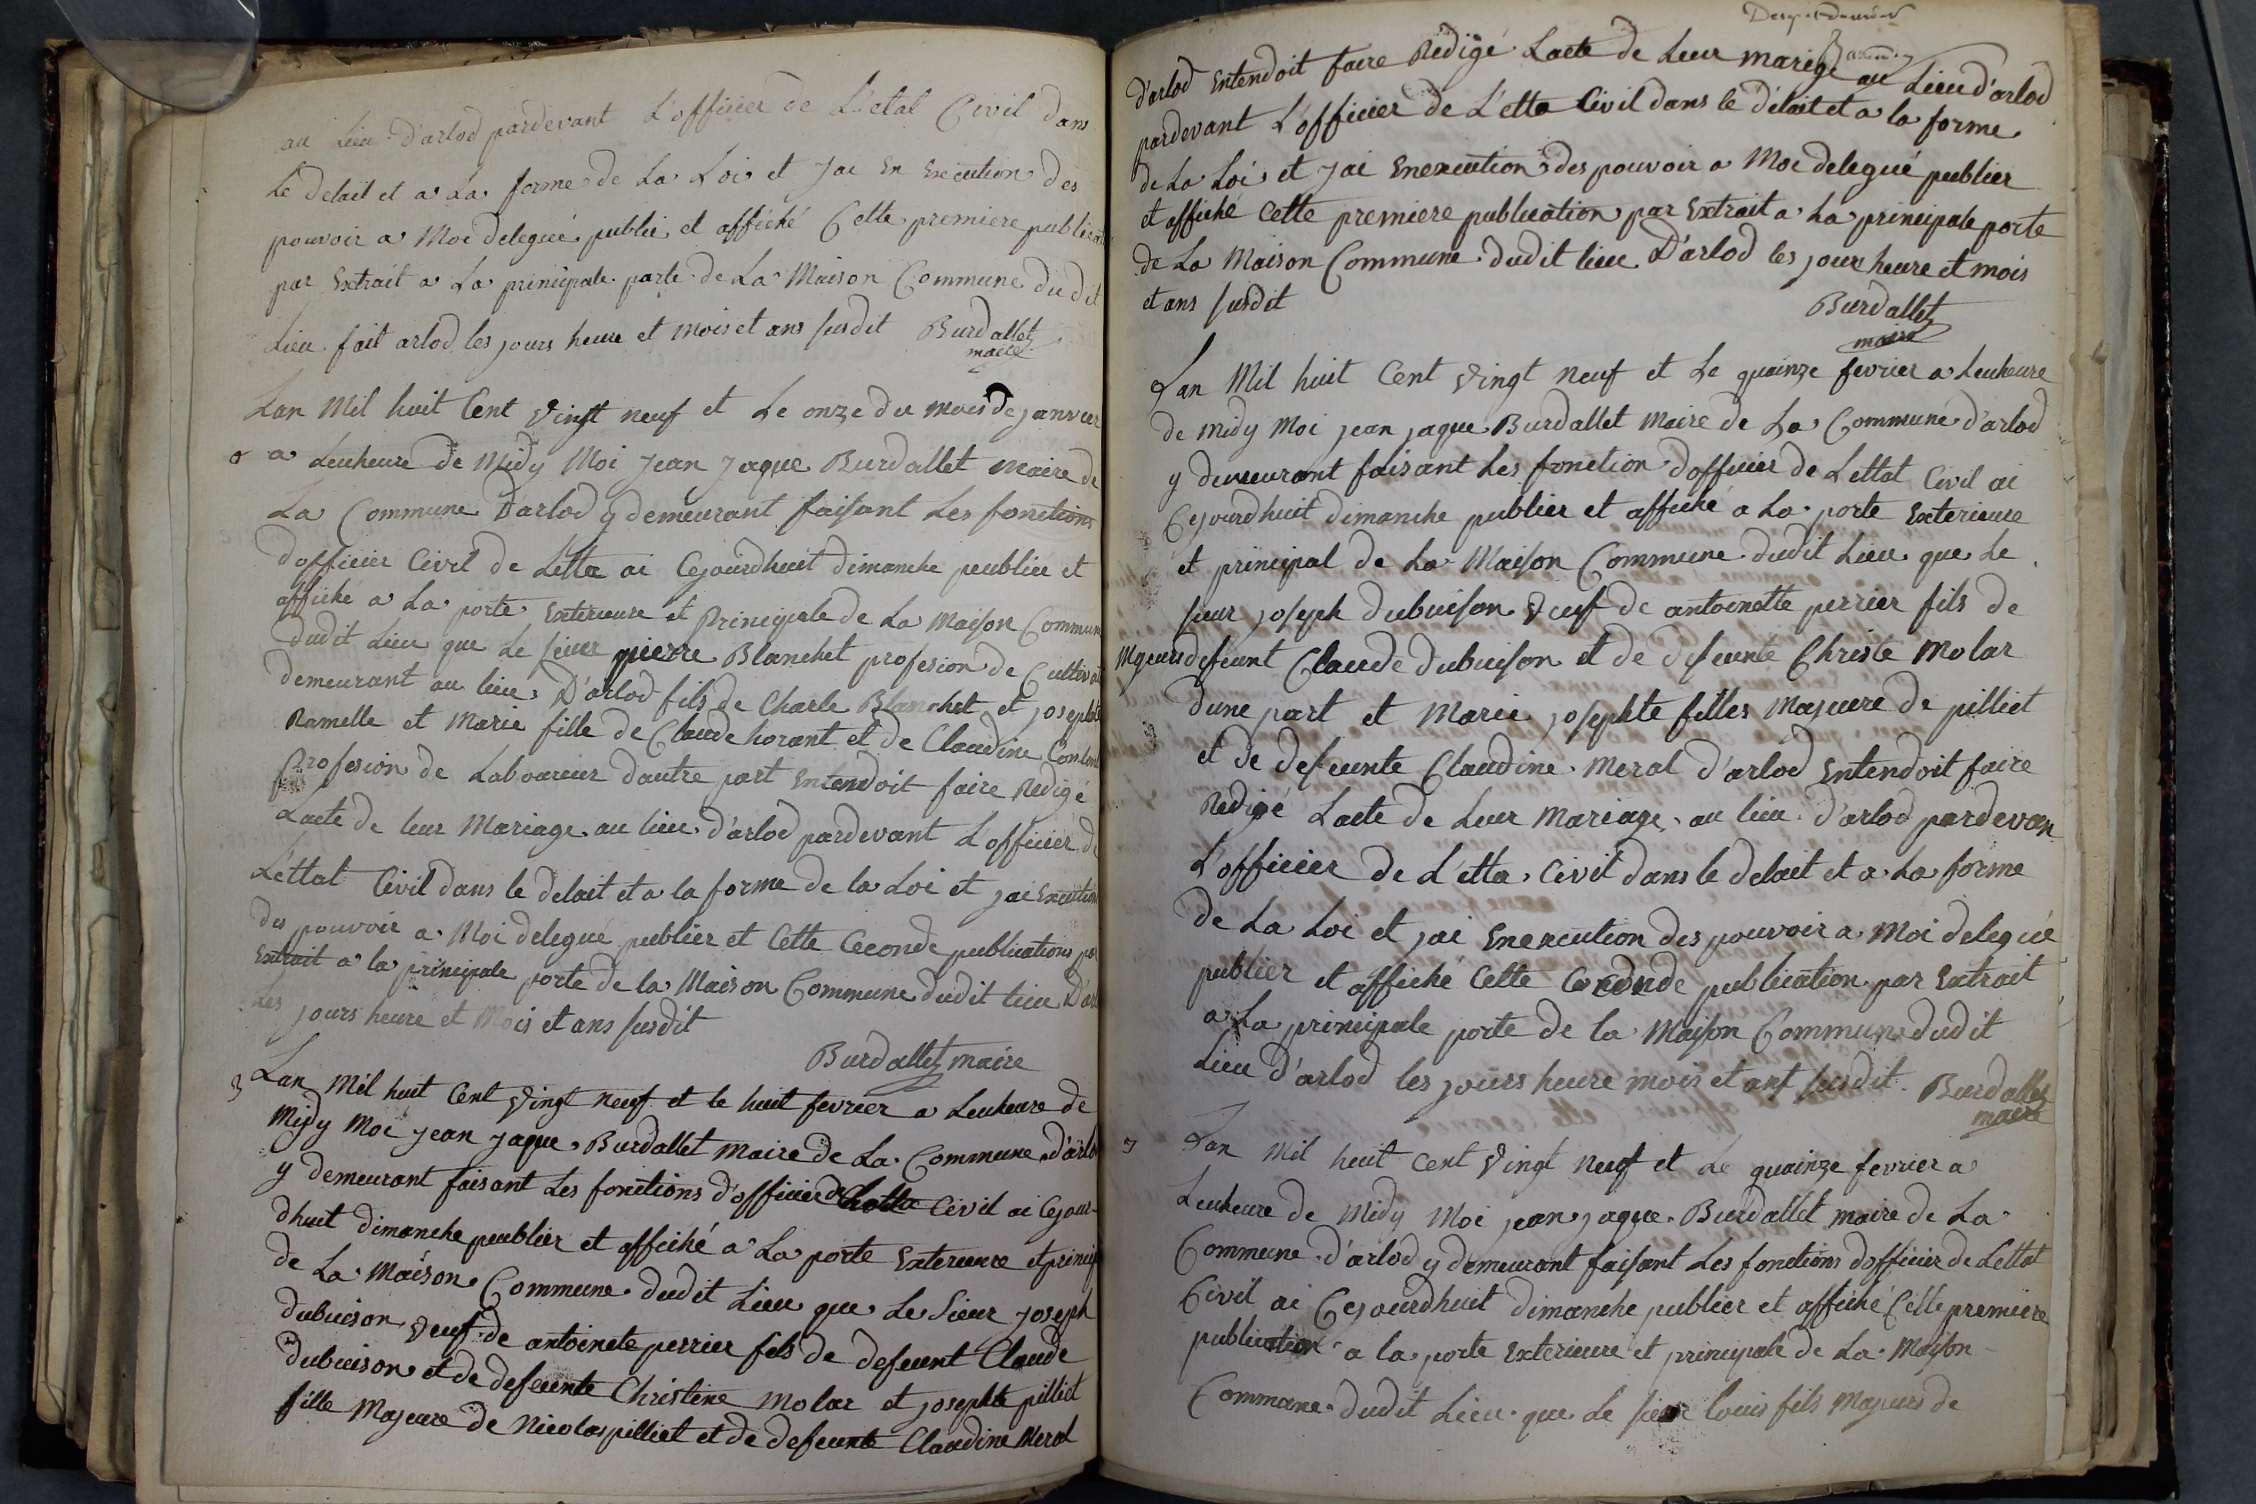 au Lieu d'arlod pardevant L'officier de L'etat Civil dans
Le delait et a La forme de La Loi et Jai En Execution des
pouvoir a Moi delegué publié et affiché Cette premiere publication
par Extrait a La principale porte de La Maison Commune dudit
Lieu fait arlod les jours heure et mois et ans susdit Burdallet
maire
Lan Mil huit Cent Vingt neuf et Le onze du mois de janvier
a Leuheure de Midy Moi Jean Jaque Burdallet maire de
La Commune D'arlod y demeurant faisant Les fonctions
d'officier Civil de Letta ai Cejourdhuit dimanche publier et
affiché a La porte Exterieure et Principale de La Maison Commune
dudit Lieu que Le sieur pierre Blanchet profesion de Cultivat
demeurant au lieu D'arlod fils de Charle Blanchet et josephte
Ramelle et Marie fille de Claude horant et de Claudine
Profesion de Laboureur dautre part Entendoit faire Redigé
Lacte de leur Mariage au lieu d'arlod pardevant L'officier de
L'ettat Civil dans le delait et a la forme de la Loi et jai Execution
des pouvoir a Moi delegué publier et Cette Ceconde publications par
Extrait a la principale porte de la Maison Commune dudit lieu D'arl
Les jours heure et Mois et ans susdit
Burdallet maire
3 Lan Mil huit Cent Vingt neuf et le huit fevrier a Leuheure de
Midy Moi Jean Jaque Burdallet maire de La Commune d'arlo
y demeurant faisant Les fonctions d'officier de Letta Civil ai Cejour-
dhuit dimanche publier et affiché a La porte Exterieure et princip
de La Maison Commune dudit Lieu que Le Sieur Joseph
dubuison Veuf de antoinete perrier fils de defeunt Claude
dubuison et de defeunte Christine Molar et josephte pilliet
fille Majeure de Nicolas pilliet et de defeunte Claudine Meral
d'arlod Entendoit faire Rédigé Lacte de Leur marige au Lieu d'arlod
pardevant L'officier de L'etta Civil dans le délait et a la forme
de La Loi et Jai Enexecution des pouvoir a Moi delegué publier
et affiché Cette premiere publication par Extrait a La principale porte
de La Maison Commune dudit lieu D'arlod les jour heure et mois
et ans susdit
Burdallet
maire
Lan Mil huit Cent Vingt neuf et Le quainze fevrier a Leuheure
de Midy Moi jean jaque Burdallet Maire de La Commune d'arlod
y demeurant faisant Les fonction dofficier de Lettat Civil ai
Cejourdhuit dimanche publier et affiché a La porte Exterieure
et principal de La Maison Commune dudit Lieu que Le
sieur joseph dubuison Veuf de antoinette perrier fils de
Majeurs defeunt Claude dubuison et de defeunte Christe Molar
dune part et Marie josephte filles Majeure de pilliet
et de defeunte Claudine Meral d'arlod Entendoit faire
Redigé Lacte de Leur Mariage au lieu d'arlod pardevan
L'officier de L'etta Civil dans le delait et a La forme
de La Loi et jai Enexecution des pouvoir a Moi delegué
publier et affiché Cette Ceconde publication par Extrait
a La principale porte de la Maison Commune dudit
Lieu D'arlod les jours heure mois et ans susdit Burdallet
maire
3 Lan Mil heuit Cent Vingt neuf et Le quainze fevrier a
Leuheure de Midy Moi jean jaque Burdallet maire de La
Commune d'arlod y demeurant faisant Les fonctions dofficier de Lettat
Civil ai Cejourdhuit dimanche publier et affiché Cette premiere
publication a la porte Exterieure et principale de La Maison
Commune dudit Lieu que Le sieur Louis fils Majeurs de